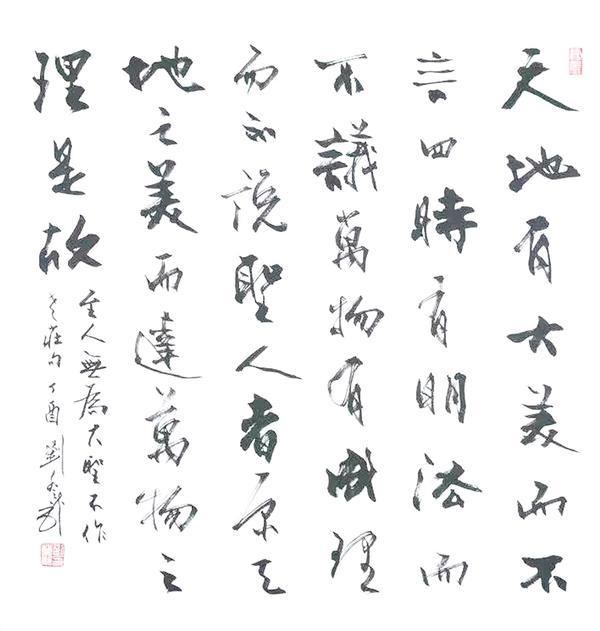 天地有大美而不
言四時有明法而
不議萬物有成理
而不說聖人者原天
地之美而達萬物之
理是故
至人無為大聖不作
莊句丁酉劉